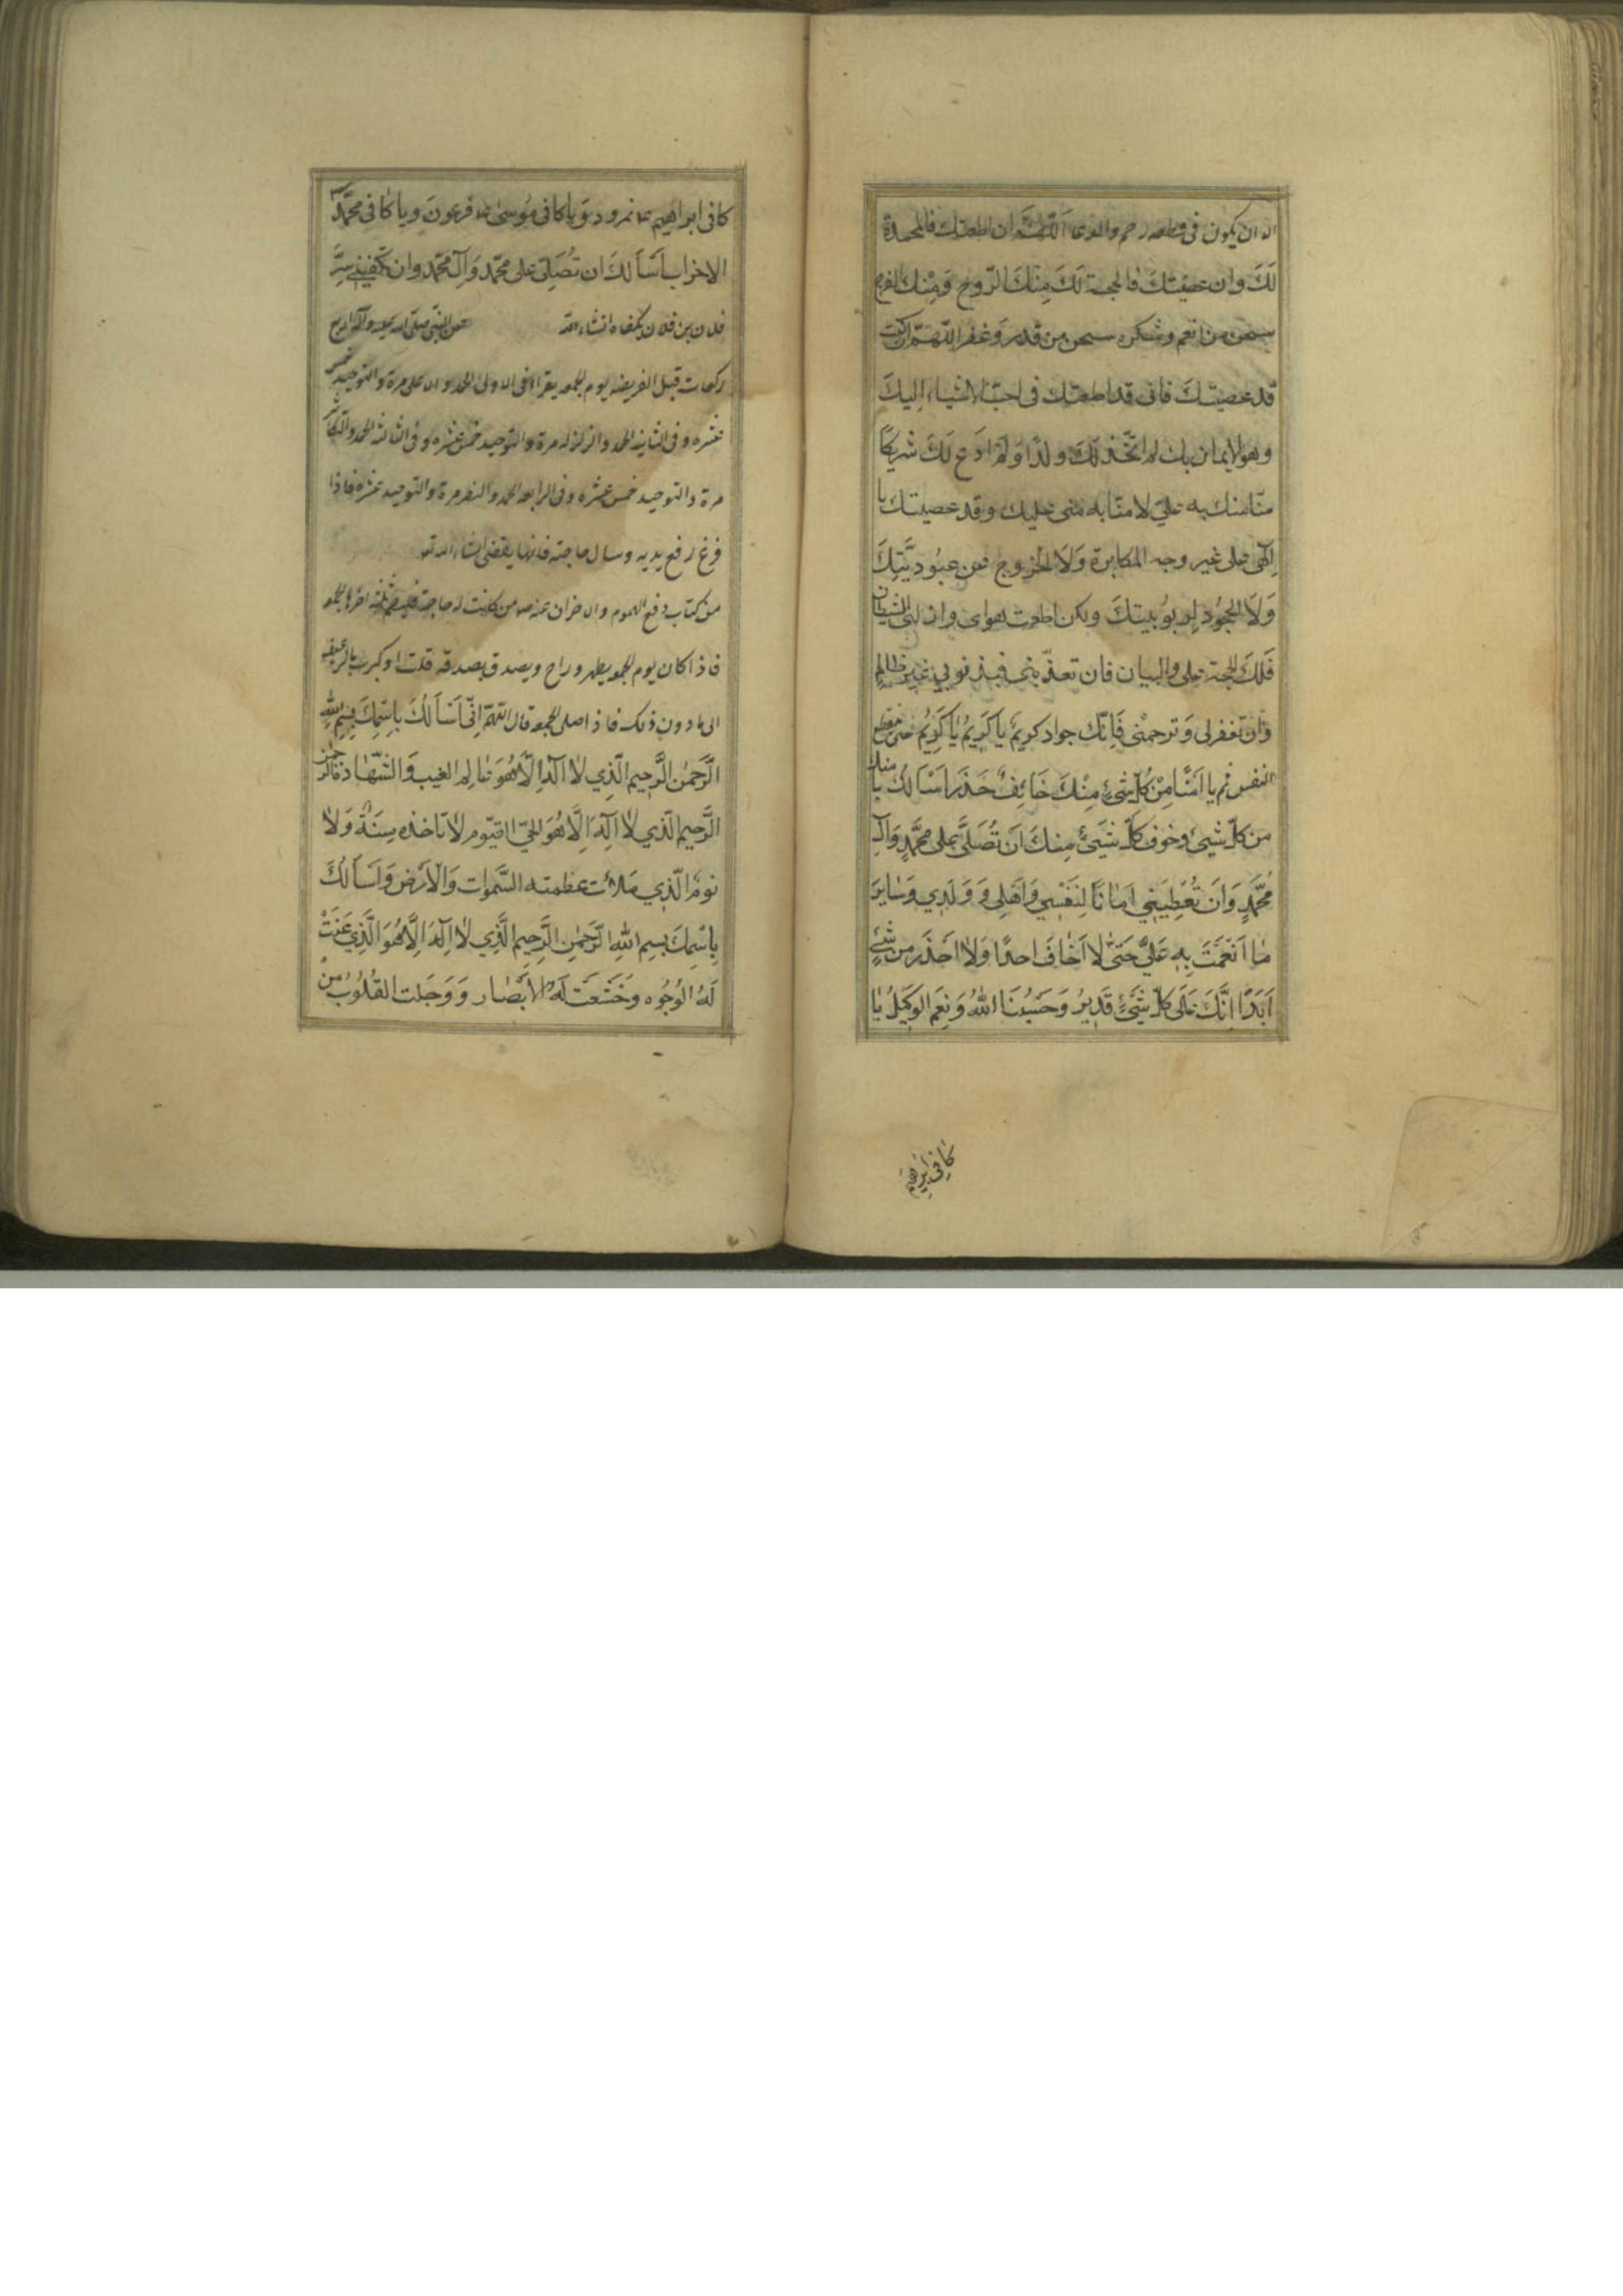 الا ان يكون فى قطيعه رحم والدعا اَللّهُمَّ ان اطعتك فالمحمدة
لَكَ وان عصيتكَ فالحجة لَكَ مِنكَ الرّوح وَمِنْك الفرج
سبحن من انعم وشكر سبحن من قدر وَغفر اللّهمّ ان كنت
قد عصيتكَ فانى قد اطعتك فى احبّ الاشياء اِليكَ
وهو الايمان بك لم اتّخذ لَكَ ولدًا وَلَم ادَع لَكَ شريكًا
منّا منك به علىّ لا منّا به منّى عليك وقد عصيتك يا
اِلٰهى على غير وجه المكابرة وَلَا الخروج عن عبُوديَّتِكَ
وَلَا الجحُود لِربُوبيتكَ ولكن اطعت هواى وازلنى الشيطان
فَلَكَ الحجة على والبيان فان تعذّبنى فبذنوبى غير ظالم
وَان تغفرلى وَترحمْنى فَاِنّك جواد كريمٌ يا كَرِيمُ يا كَرِيمُ حتى ينقطع
النفس ثم يا امنًا مِنْ كُلّ شىءٍ مِنْكَ خَائِفٌ حَذَرَ اَسْاَلُكَ بامنك
من كلّ شيئ وخوف كلّ شَيئٍ مِنكَ اَن تُصَلّىَ على محَمَّدٍ وَآلِ
مُحَمَّدٍ وَاَن تُعْطِيَنِي اَمَانًا لِنَفْسِي وَاَهْلِى وَوَلَدِي وَسَايِرَ
مٰا اَنْعَمْتَ بِهِ عَلَيَّ حَتّىٰ لا اَخٰافَ احدًا وَلا احذَرَ من شئٍ
اَبَدًا اِنَّكَ عَلَى كلّ شَيئٍ قَدِيرٌ وَحَسْبُنَا اللهُ وَنِعمَ الوكِيلُ يٰا
كافِى اِبراهيم
كافى ابراهيم نمرود وَيا كافى مُوسىٰ فرعونَ ويا كافى محمّدٍ
الاحزاب اَسْاَلكَ ان تُصَلّى على محمّد وَآل محمّد وان تكفينى شرَّ
فلان بن فلان يكفاه انشاء الله عن النبّى صلّى الله عليه وآله اربع
ركعات قبل الفريضه يوم الجمعه يقرا فى الاولى الحمد والاعلى مرة والتوحيد خمس
عشره وفى الثانيه الحمد والزلزله مرة والتوحيد خمس عشره وفى الثالثه الحمد والتكاثر
مرة والتوحيد خمس عشره وفى الرابعه الحمد والنصر مرة والتوحيد عشره فاذا
فرغ رفع يديه وسال حاجته فانها يقضى انشاء الله تع
من كتاب دفع الهموم والاحزان من كانت له حاجة فليصم ثلثه اخرها الجمعه
فاذا كان يوم الجمعه يطهر وراح ويصدق بصدقه قلت او كبرت بالرغيف
الى ما دون ذلك فاذا صلى الجمعة قال اللّهمّ اِنّى اَسْاَلُكَ بِاسْمِكَ بِسم اللهِ
الرَّحمٰن الرَّحيم الّذي لا الٰهَ اِلّا هُوَ عالِم الغيب وَالشّهادة الرّحمٰن
الرَّحيم الّذي لا اِلٰهَ اِلَّا هُوَ الحيّ القيّوم لا تاخذه سِنَةٌ وَلا
نومٌ الّذي مَلأت عظمته السَّمٰوات وَالاَرض وَاَسْاَلُكَ
بِاسْمِكَ بسِم اللهِ الرَّحمٰنِ الرَّحِيم الَّذي لا اِلٰهَ اِلَّا هُوَ الَّذي عَنَتْ
لَهُ الوُجُوه وخَشَعَتْ لَهُ الاَبْصٰار وَوَجَلت القُلُوبُ مِن